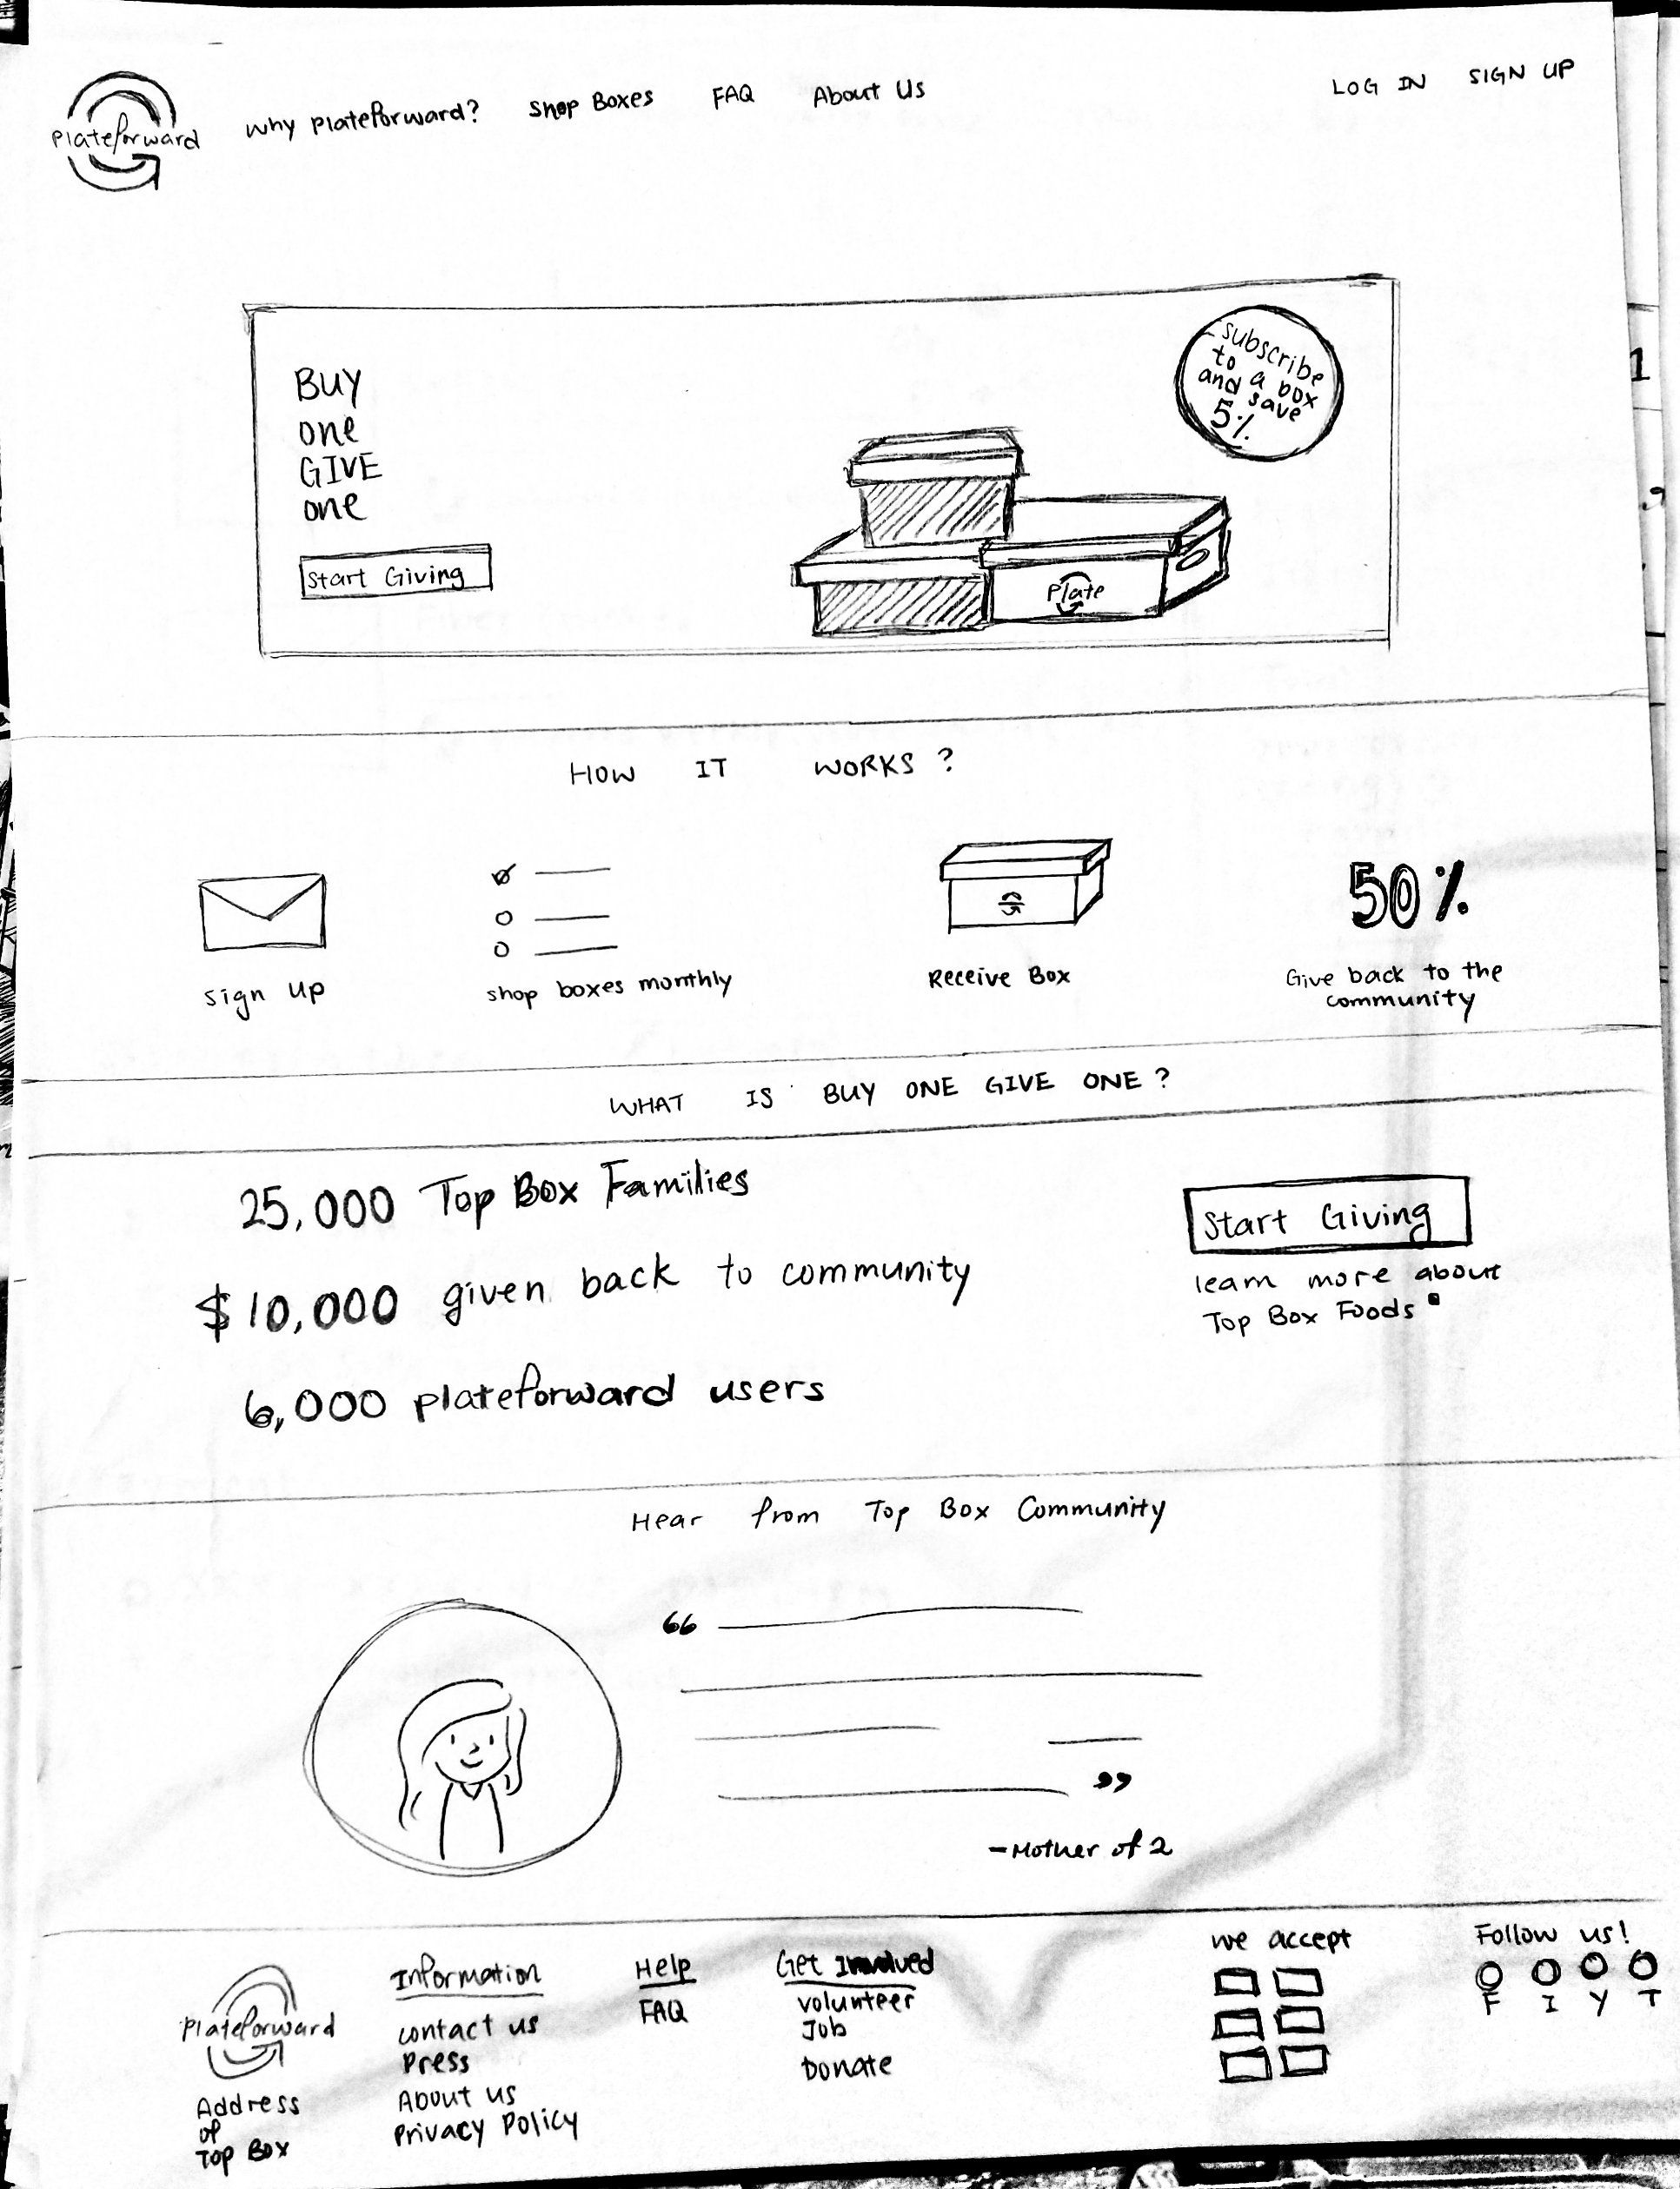 Plateforward
Why plateforward?
Shop Boxes
FAQ
About Us
LOG IN
SIGN UP
BUY
one
GIVE
one
Start Giving
Subscribe
to a box
and save
5%
Plate
HOW IT WORKS?
sign up
shop boxes monthly
Receive Box
50%
Give back to the
community
WHAT IS BUY ONE GIVE ONE?
25,000 Top Box Families
$10,000 given back to community
6,000 plateforward users
Start Giving
learn more about
Top Box Foods
Hear from Top Box Community
“
”
- Mother of 2
Plateforward
Address
of
Top Box
Information
contact us
Press
About us
Privacy Policy
Help
FAQ
Get Involved
volunteer
Job
Donate
we accept
Follow us!
F I Y T